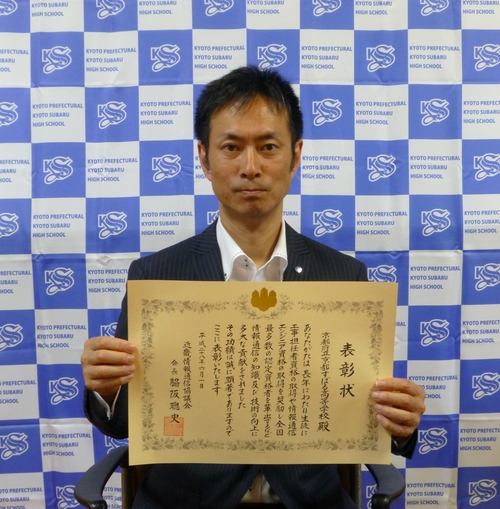 KYOTO PREFECTURAL
KYOTO SUBARU
HIGH SCHOOL
KS
表彰状
京都府立京都すばる高等学校 殿
あなたがたは長年にわたり生徒に
工事担任者資格の取得や情報通信
エンジニア資格の取得を奨励し全国
最多数の認定資格者を輩出するなど
情報通信の知識及び技術の向上に
多大な貢献をされました
その功績は誠に顕著でありますので
ここに表彰いたします
平成二十八年六月一日
近畿情報通信協議会
会長 脇阪 聰史